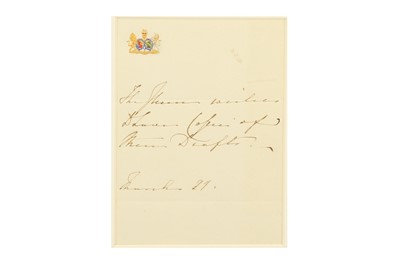 The Queen wishes
to have Copies of
these Drafts.
March 29.